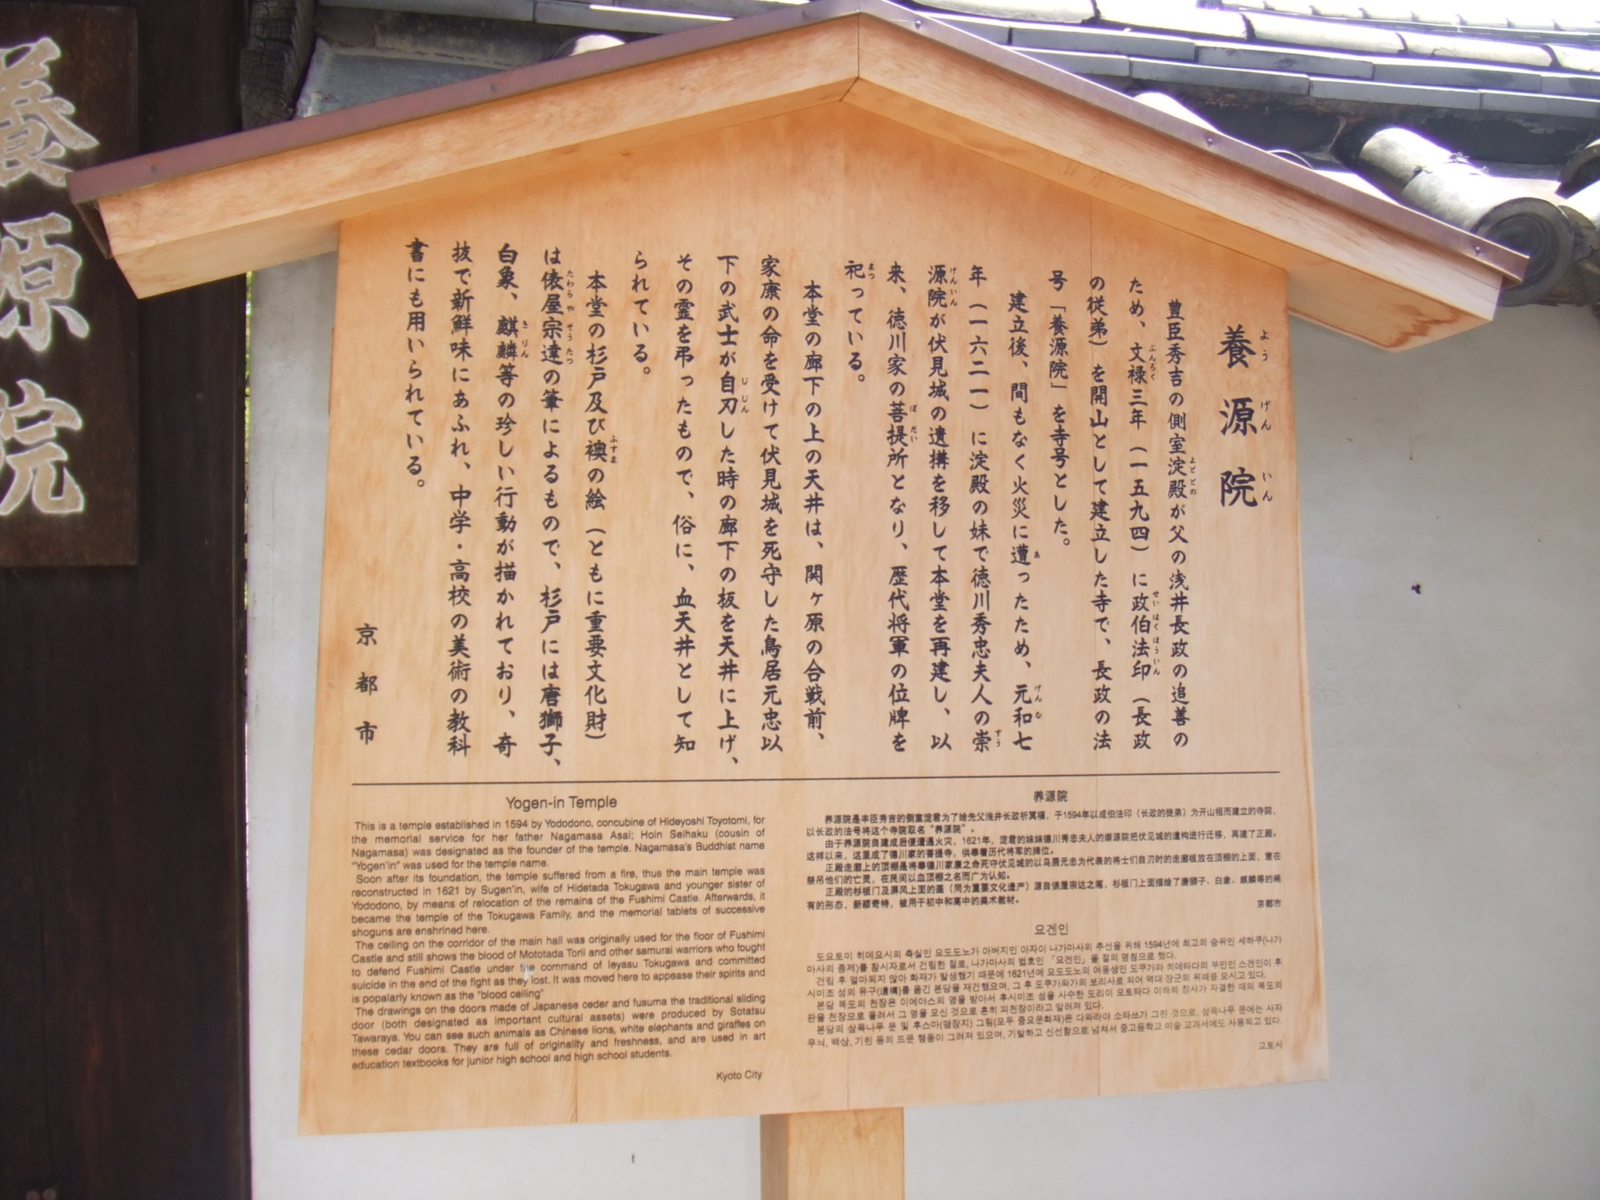 養源院
養源院
よう げん いん
豊臣秀吉の側室淀殿が父の浅井長政の追善の
ため、文禄三年（一五九四）に政伯法印（長政
の従弟）を開山として建立した寺で、長政の法
号「養源院」を寺号とした。
建立後、間もなく火災に遭ったため、元和七
年（一六二一）に淀殿の妹で徳川秀忠夫人の崇
源院が伏見城の遺構を移して本堂を再建し、以
来、徳川家の菩提所となり、歴代将軍の位牌を
祀っている。
本堂の廊下の上の天井は、関ヶ原の合戦前、
家康の命を受けて伏見城を死守した鳥居元忠以
下の武士が自刃した時の廊下の板を天井に上げ、
その霊を弔ったもので、俗に、血天井として知
られている。
本堂の杉戸及び襖の絵（ともに重要文化財）
は俵屋宗達の筆によるもので、杉戸には唐獅子、
白象、麒麟等の珍しい行動が描かれており、奇
抜で新鮮味にあふれ、中学・高校の美術の教科
書にも用いられている。
京都市
Yogen-in Temple
This is a temple established in 1594 by Yododono, concubine of Hideyoshi Toyotomi, for
the memorial service for her father Nagamasa Asai; Hoin Seihaku (cousin of
Nagamasa) was designated as the founder of the temple. Nagamasa's Buddhist name
"Yogen'in" was used for the temple name.
Soon after its foundation, the temple suffered from a fire, thus the main temple was
reconstructed in 1621 by Sugen'in, wife of Hidetada Tokugawa and younger sister of
Yododono, by means of relocation of the remains of the Fushimi Castle. Afterwards, it
became the temple of the Tokugawa Family, and the memorial tablets of successive
shoguns are enshrined here.
The ceiling on the corridor of the main hall was originally used for the floor of Fushimi
Castle and still shows the blood of Mototada Torii and other samurai warriors who fought
to defend Fushimi Castle under the command of Ieyasu Tokugawa and committed
suicide in the end of the fight as they lost. It was moved here to appease their spirits and
is popalarly known as the "blood ceiling"
The drawings on the doors made of Japanese ceder and fusuma the traditional sliding
door (both designated as important cultural assets) were produced by Sotatsu
Tawaraya. You can see such animals as Chinese lions, white elephants and giraffes on
these cedar doors. They are full of originality and freshness, and are used in art
education textbooks for junior high school and high school students.
Kyoto City
养源院
养源院是丰臣秀吉的侧室淀君为了给先父浅井长政祈冥福，于1594年以成伯法印（长政的徒弟）为开山祖而建立的寺院，
以长政的法号将这个寺院取名“养源院”。
由于养源院自建成后便遭遇火灾，1621年，淀君的妹妹德川秀忠夫人的崇源院把伏见城的遗构进行迁移，再建了正殿。
这样以来，这里成了德川家的菩提寺，供奉着历代将军的牌位。
正殿走廊上的顶棚是将奉德川家康之命死守伏见城的以鸟居元忠为代表的将士们自刃时的走廊板放在顶棚的上面，意在
祭吊他们的亡灵，在民间以血顶棚之名而广为认知。
正殿的杉板门及屏风上面的画（同为重要文化遗产）源自俵屋宗达之笔，杉板门上面描绘了唐狮子、白象、麒麟等的稀
有的形态、新颖奇特，被用于初中和高中的美术教材。
京都市
요겐인
도요토미 히데요시의 측실인 요도도노가 아버지인 아자이 나가마사의 추선을 위해 1594년에 최고의 승위인 세하쿠(나가
마사의 종제)를 창시자로서 건립한 절로, 나가마사의 법호인 「요겐인」을 절의 명칭으로 했다.
건립 후 얼마되지 않아 화재가 발생했기 때문에 1621년에 요도도노의 여동생인 도쿠가와 히데타다의 부인인 스겐인이 후
시미조 성의 유구(遺構)를 옮긴 본당을 재건했으며, 그 후 도쿠가와가의 보리사로 되어 역대 장군의 위패를 모시고 있다.
본당 복도의 천장은 이에야스의 명을 받아서 후시미조 성을 사수한 도리이 모토타다 이하의 장사가 자결한 때의 복도의
판을 천장으로 올려서 그 영을 모신 것으로 흔히 피천장이라고 알려져 있다.
본당의 삼목나무 문 및 후스마(맹장지) 그림(모두 중요문화재)은 다와라야 소타쓰가 그린 것으로, 삼목나무 문에는 사자
무늬, 백상, 기린 등의 드문 행동이 그려져 있으며, 기발하고 신선함으로 넘쳐서 중고등학교 미술 교과서에도 사용되고 있다.
교토시